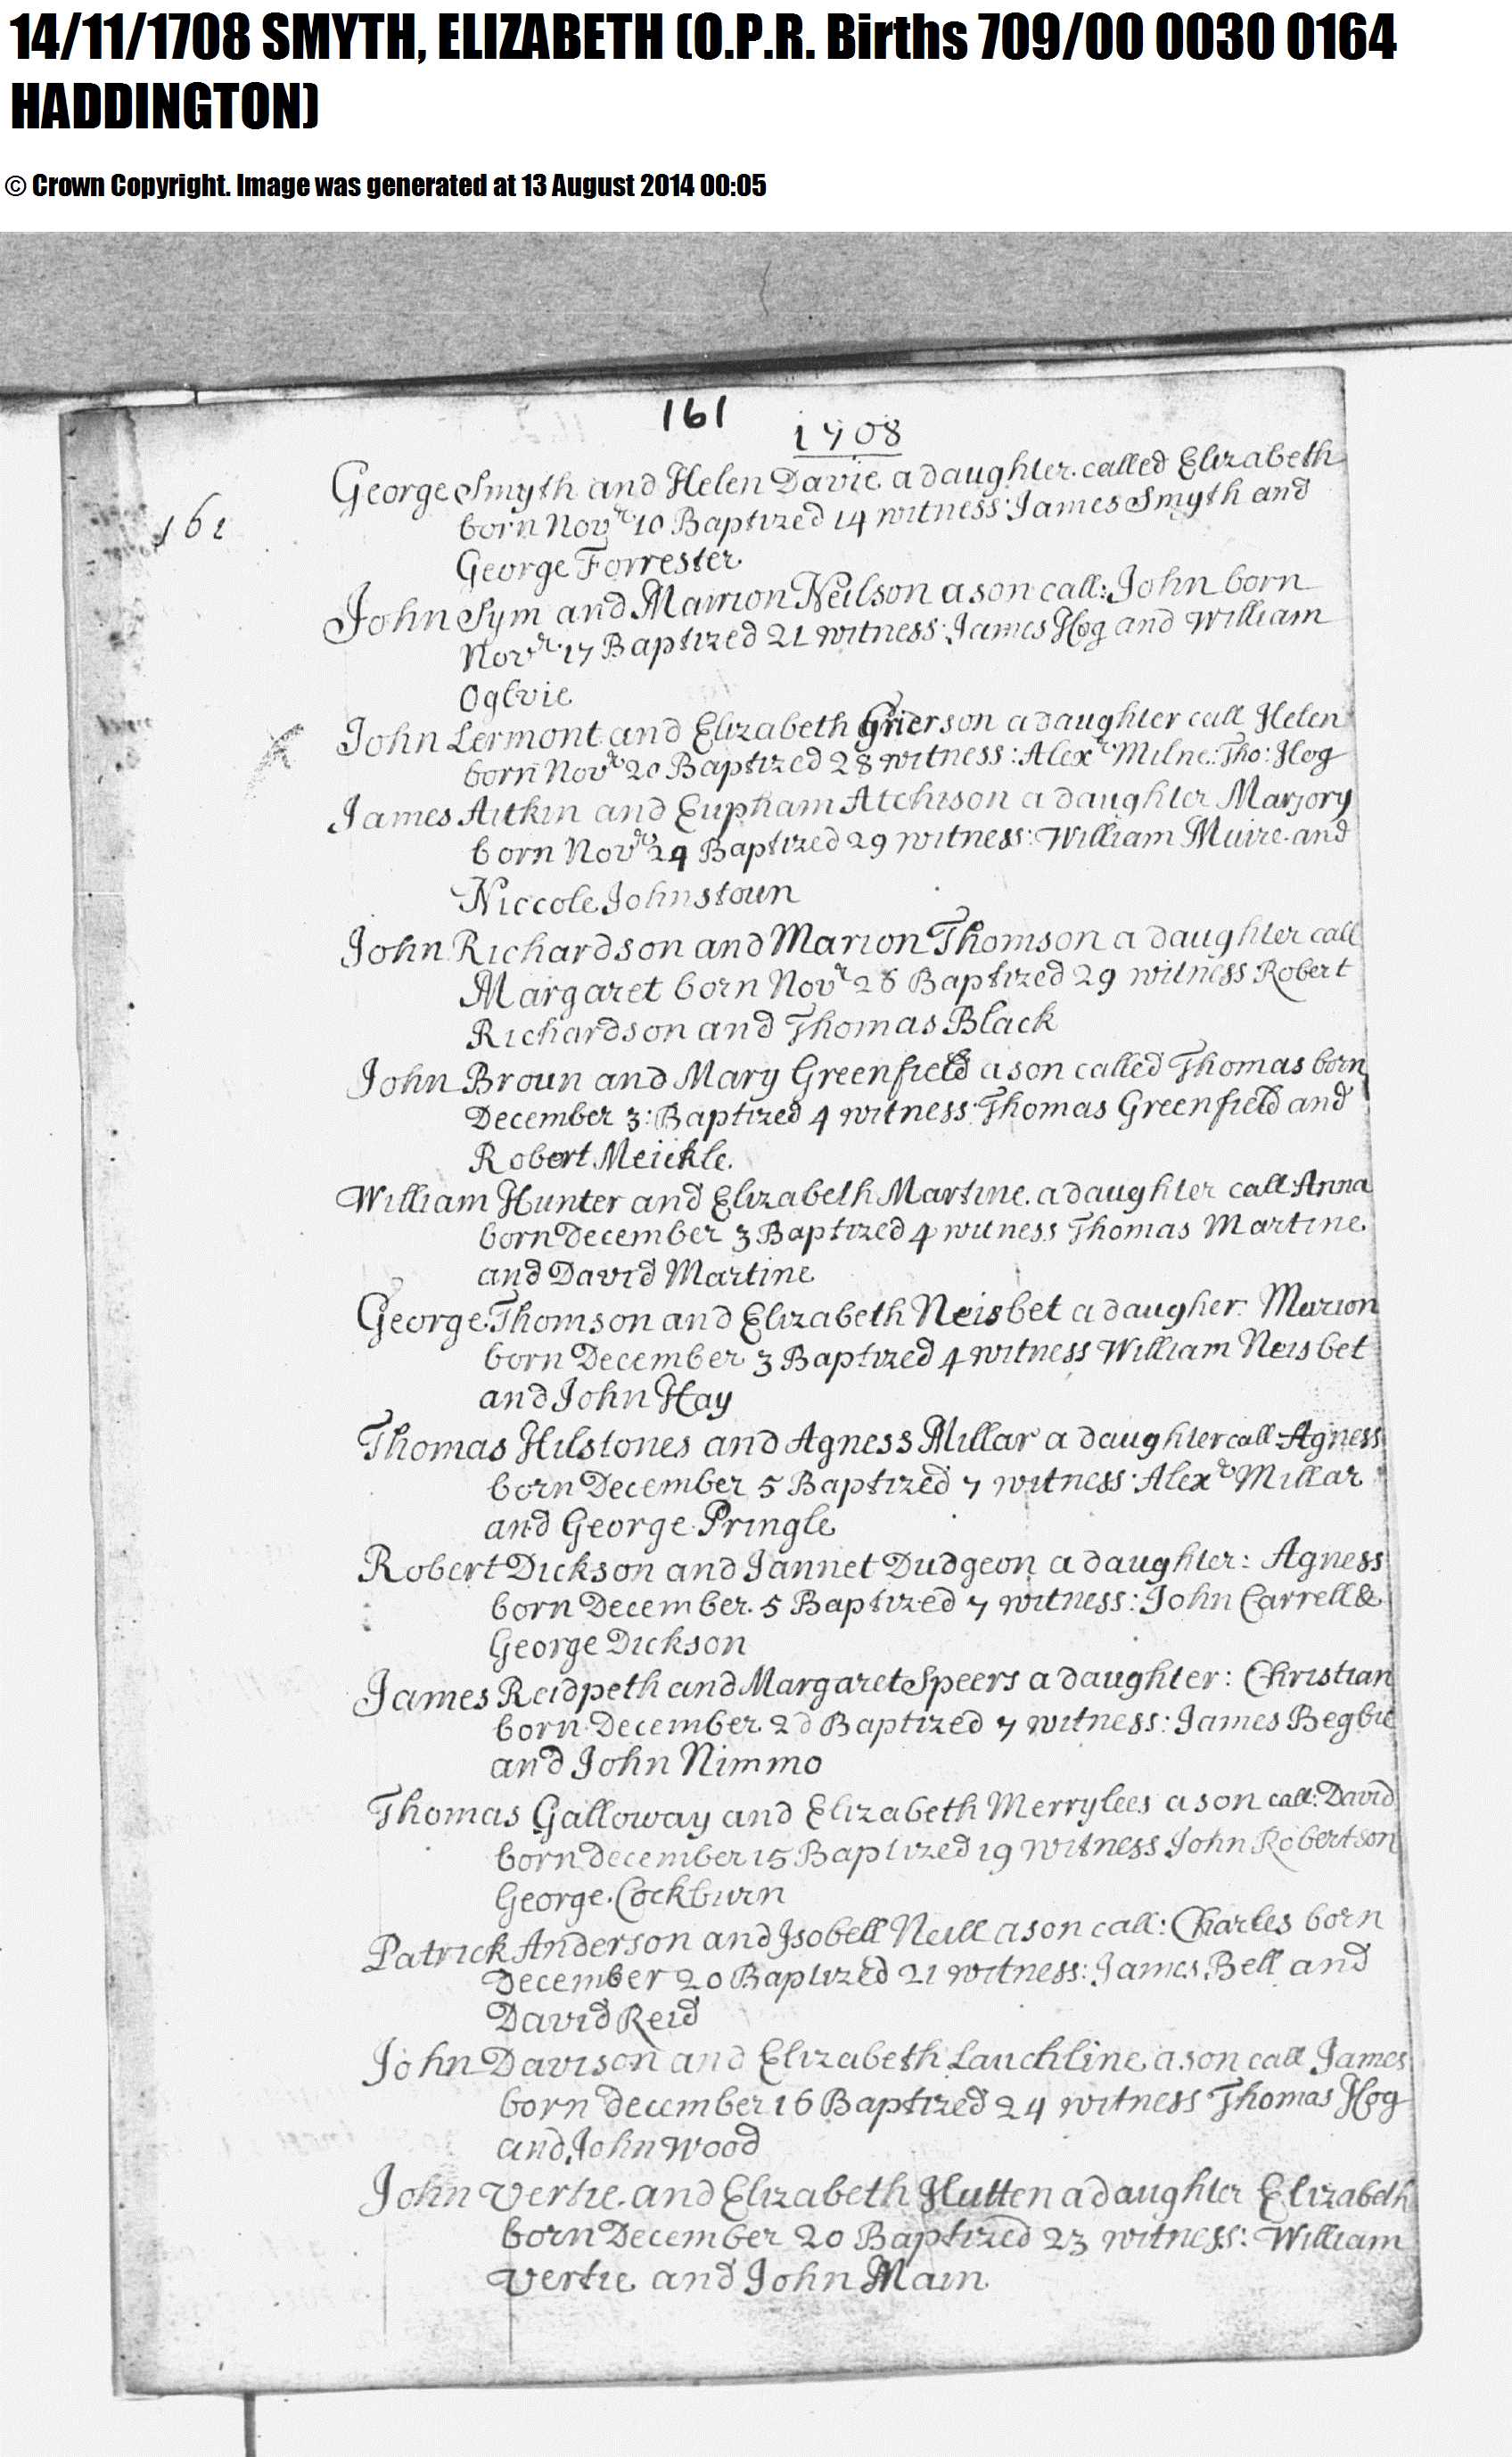 14/11/1708 SMYTH, ELIZABETH (O.P.R. Births 709/00 0030 0164
HADDINGTON)
© Crown Copyright. Image was generated at 13 August 2014 00:05
161
1708
161
George Smyth and Helen Davie a daughter called Elizabeth
born Novr 10 Baptized 14 witness: James Smyth and
George Forrester
John Sym and Marrion Neilson a son call: John born
Novr 17 Baptized 21 witness: James Hog and William
Ogilvie
John Lermont and Elizabeth Grierson a daughter call Helen
born Novr 20 Baptized 28 witness: Alexr Milne: Tho: Hog
James Aitkin and Eupham Atchison a daughter Marjory
born Novr 24 Baptized 29 witness: William Muire and
Niccole Johnstoun
John Richardson and Marion Thomson a daughter call
Margaret born Novr 28 Baptized 29 witness Robert
Richardson and Thomas Black
John Broun and Mary Greenfield a son called Thomas born
December 3: Baptized 4 witness: Thomas Greenfield and
Robert Meickle
William Hunter and Elizabeth Martine a daughter call: Anna
born December 3 Baptized 4 witness Thomas Martine
and David Martine
George Thomson and Elizabeth Neisbet a daugher: Marion
born December 3 Baptized 4 witness William Neisbet
and John Hay
Thomas Hilstones and Agness Millar a daughter call: Agness
born December 5 Baptized 7 witness: Alexr Millar
and George Pringle
Robert Dickson and Jannet Dudgeon a daughter: Agness
born December 5 Baptized 7 witness: John Carrell &
George Dickson
James Reidpeth and Margaret Speers a daughter: Christian
born December 2d Baptized 7 witness: James Begbie
and John Nimmo
Thomas Galloway and Elizabeth Merrylees a son call: David
born december 15 Baptized 19 witness John Robertson
George Cockburn
Patrick Anderson and Isobell Neill a son call: Charles born
December 20 Baptized 21 witness: James Bell and
David Reid
John Davison and Elizabeth Lauchline a son call James
born december 16 Baptized 24 witness Thomas Hog
and John Wood
John Vertie and Elizabeth Hutten a daughter Elizabeth
born December 20 Baptized 23 witness: William
Vertie and John Main